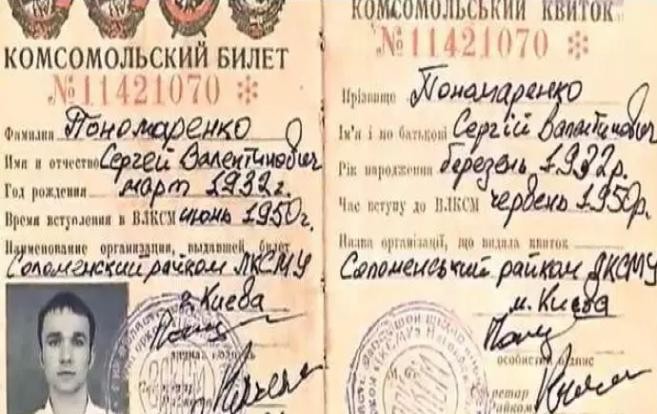 КОМСОМОЛЬСКИЙ БИЛЕТ
№11421070 *
Фамилия Пономаренко
Имя и отчество Сергей Валентинович
Год рождения март 1932г.
Время вступления в ВЛКСМ июнь 1950г.
Наименование организации, выдавшей билет
Соломенский райком ЛКСМУ
г. Киева
КОМСОМОЛЬСЬКИЙ КВИТОК
№11421070 *
Прізвище Пономаренко
Ім'я і по батькові Сергій Валентинович
Рік народження березень 1932р.
Час вступу до ВЛКСМ червень 1950р.
Назва організації, що видала квиток
Соломенський райком ЛКСМУ
м. Києва
особистий підпис